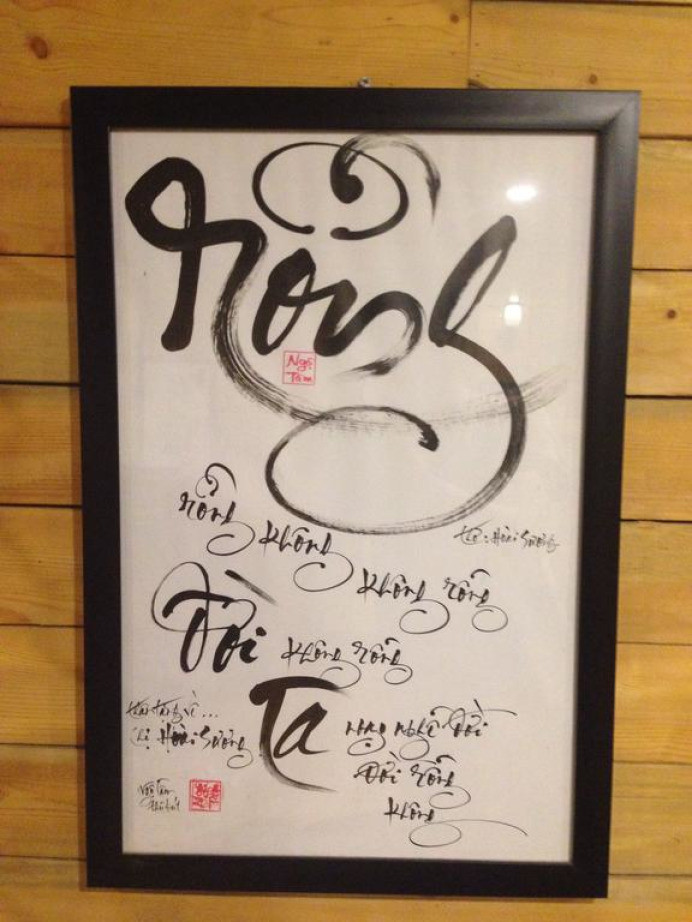 Rỗng
Ngộ
Tâm
Rỗng không
Thơ: Hoài Sương
Không rỗng
Đời không rỗng
Ta ngạo nghễ đời
Đời rỗng
không
Thân tặng về...
chị Hoài Sương
Văn Tâm